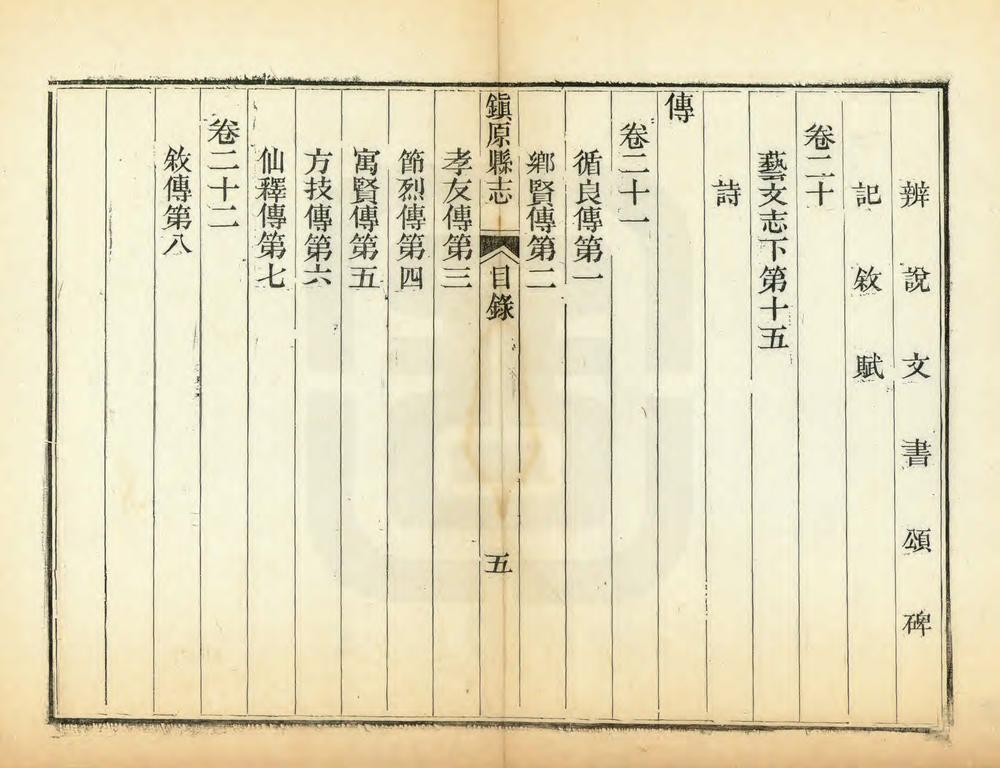 辨說文書頌碑
記敘賦
卷二十
藝文志下第十五
詩
傳
卷二十一
循良傳第一
鄉賢傳第二
鎭原縣志 目錄 五
孝友傳第三
節烈傳第四
寓賢傳第五
方技傳第六
仙釋傳第七
卷二十二
敘傳第八